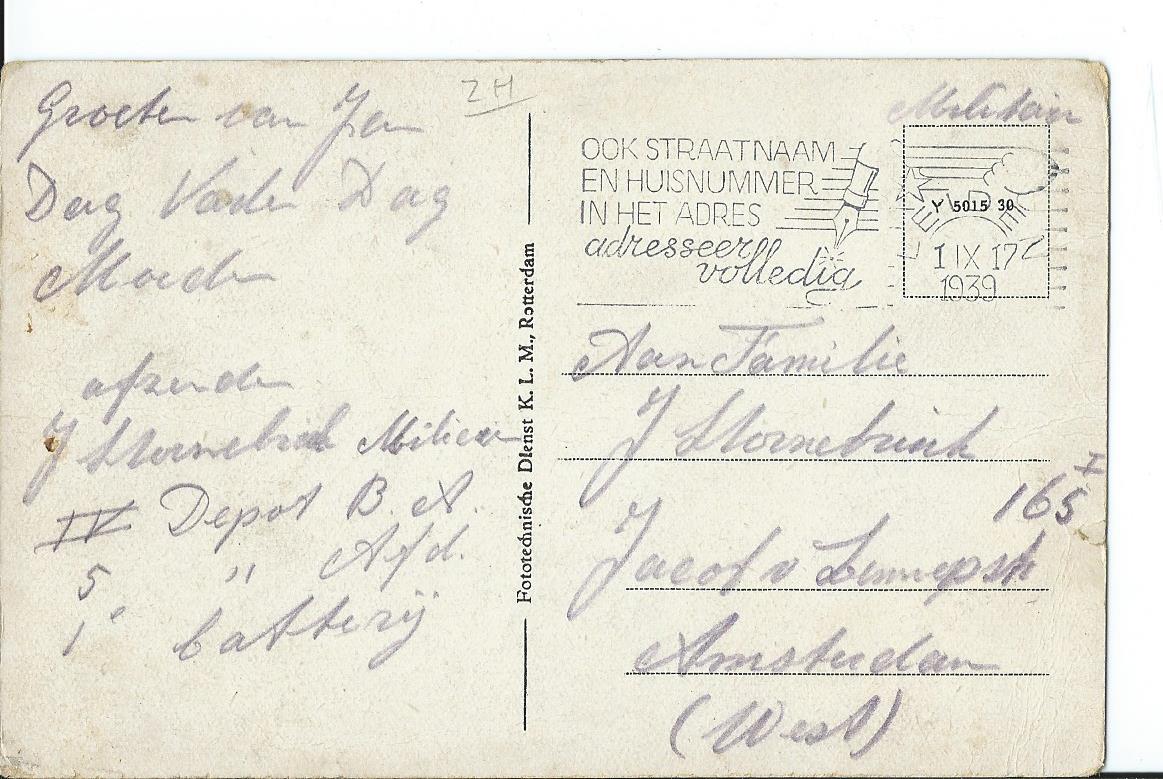 ZH
Groeten van Jan
Dag Vader Dag
Moeder
afzender
J Stornebrink Milicien
IV Depot B. A.
5 " Afd.
1e batterij
Fototechnische Dienst K. L. M., Rotterdam
Militair
OOK STRAATNAAM
EN HUISNUMMER
IN HET ADRES
adresseer
volledig
Y 5015 30
1 IX 17
1939
Aan Familie
J Stornebrink
165 I
Jacob v Lennepstr
Amsterdam
(West)